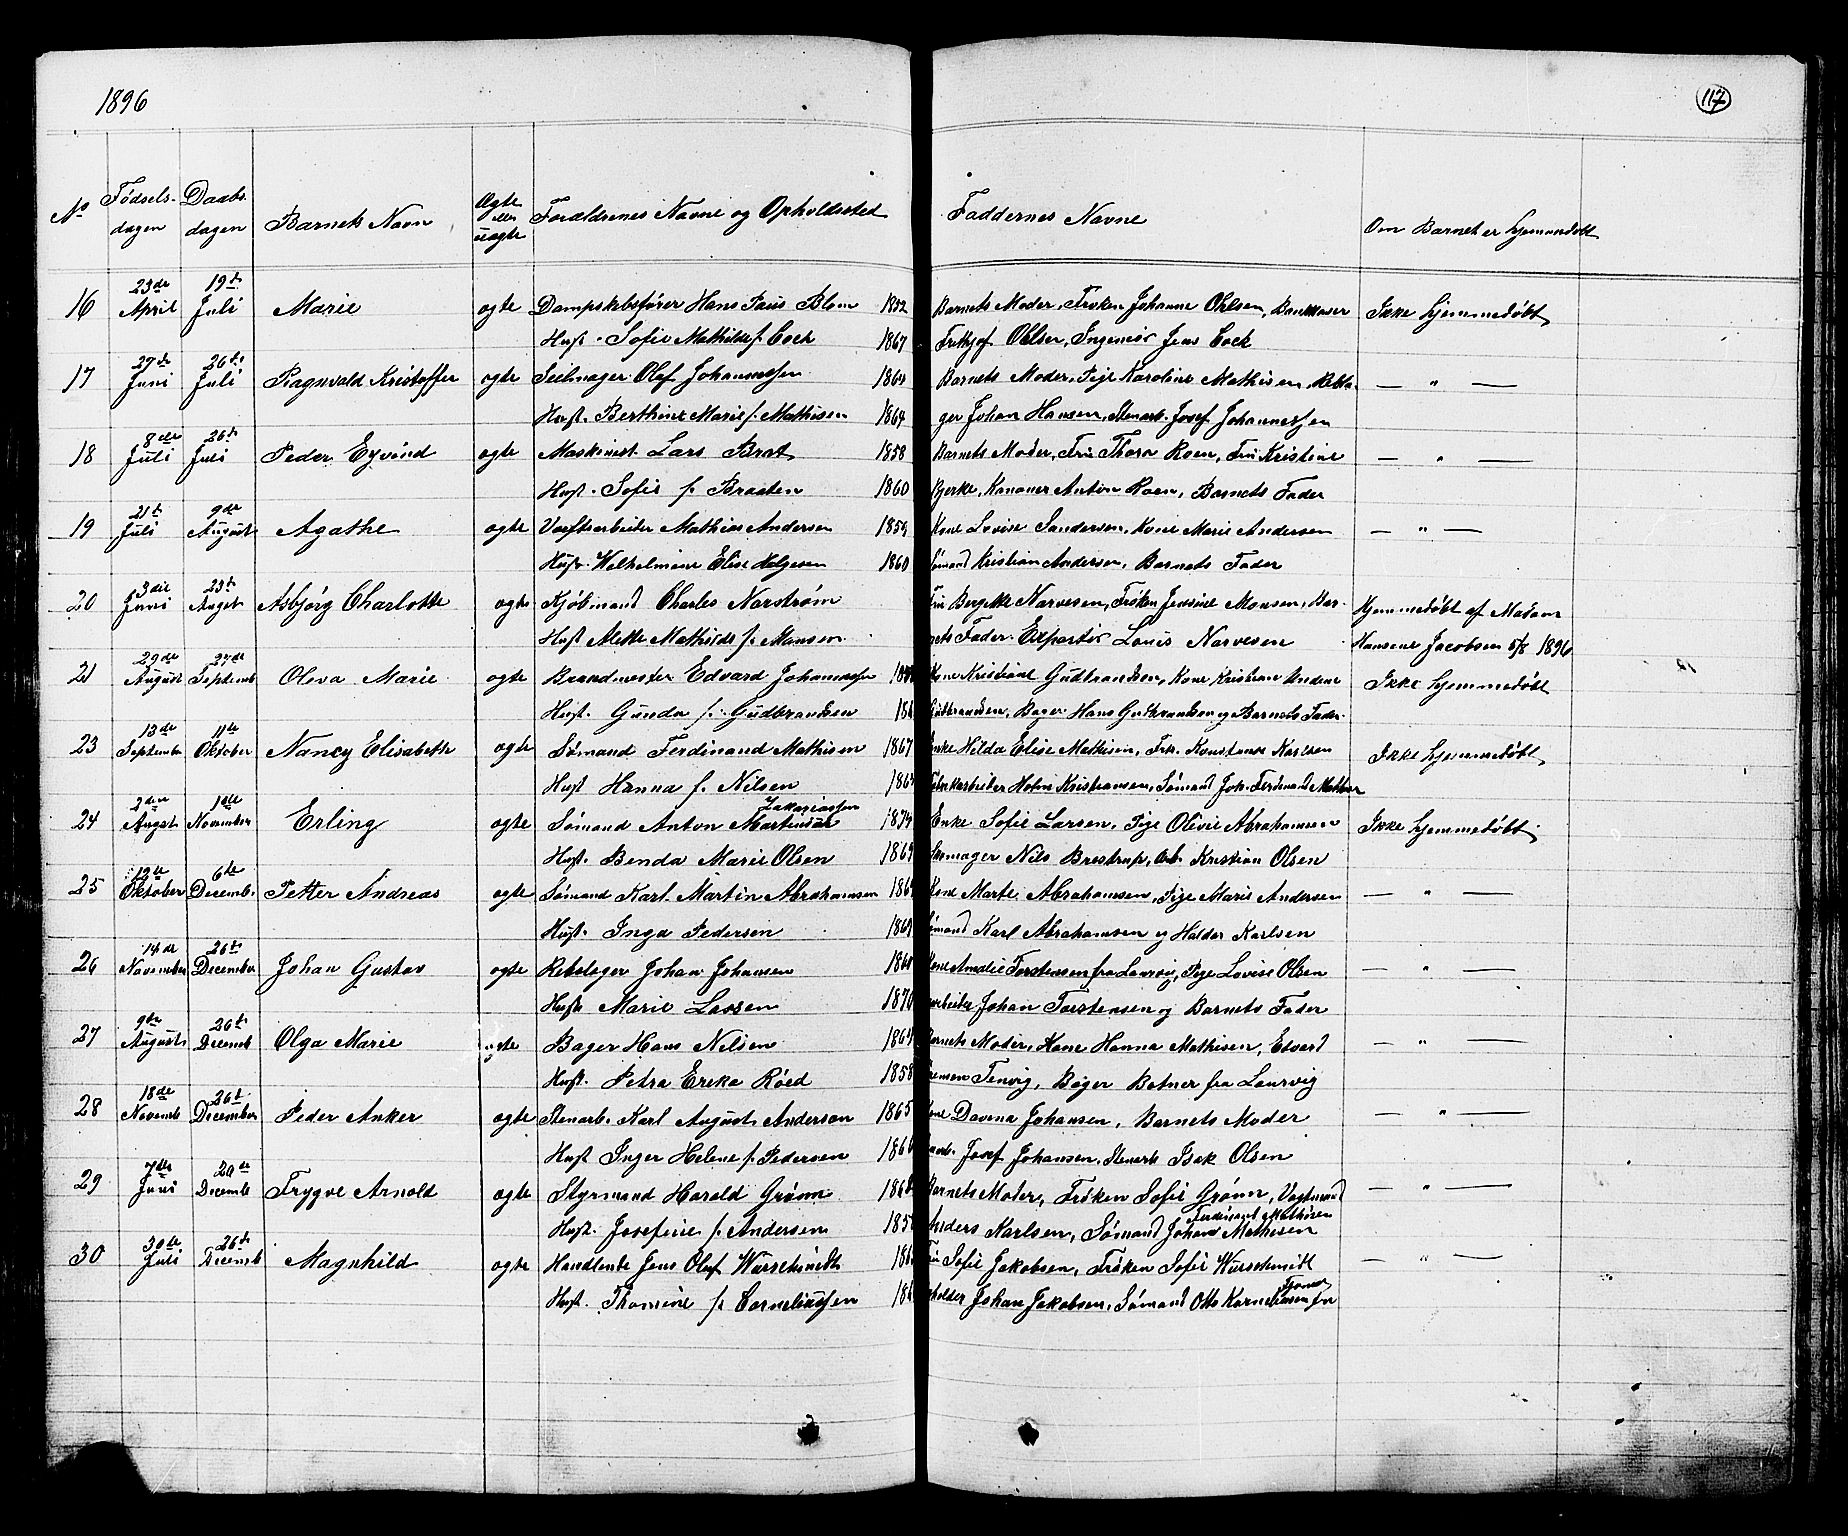 1896
117
No Fødsels-dagen Daabs-dagen Barnets Navn Ægte eller uægte Forældrenes Navne og Opholdssted Faddernes Navne Om Barnet er hjemmedøbt
16 23de April 19de Juli Marie ægte Dampskibsfører Hans Paus Blom 1852 Barnets Moder, Frøken Johanne Ohlsen, Bankkaser Ikke hjemmedøbt
Hust. Sofie Mathilde f. Cock 1867 Frithjof Ohlsen, Ingeniør Jens Cock
17 27de Juni 26de Juli Ragnvald Kristoffer ægte Seilmager Olaf Johannessen 1864 Barnets Moder, Pige Karoline Mathisen, Rebsla- — " —
Hust. Berthine Marie f. Mathisen 1864 ger Johan Hansen, Stenarb. Josef Johannessen
18 8de Juli 26de Juli Peder Eyvind ægte Maskinist Lars Brat 1858 Barnets Moder, Fru Thora Roen, Fru Kristine — " —
Hust. Sofie f. Braaten 1860 Bjerke, Kanoner Anton Roen, Barnets Fader
19 21de Juli 9de August Agathe ægte Værftsarbeider Mathias Andersen 1859 Kone Lovise Sandersen, Kone Marie Andersen — " —
Hust. Wilhelmine Elise Helgesen 1860 Sømand Kristian Andersen, Barnets Fader
20 3die Juni 23de Augst Asbjørg Charlotte ægte Kjøbmand Charles Narstrøm Fru Bergitte Narvesen, Frøken Jensine Monsen, Bar- Hjemmedøbt af Madam
Hust Alette Mathilde f. Monsen nets Fader. Expeditør Louis Narvesen Hansene Jacobsen 5/8 1896
21 29de August 27de Septemb Oleva Marie ægte Brandmester Edvard Johannessen Kone Kristiane Gudbrandsen, Kone Kristiane Andrea Ikke hjemmedøbt
Hust. Gunda f. Gudbrandsen Gudbrandsen, Bager Hans Gudbrandsen og Barnets Fader.
23 13de Septembr 11te Oktober Nancy Elisabeth ægte Sømand Ferdinand Mathisen 1867 Enke Hilda Elise Mathisen, Frk. Konstanse Karlsen Ikke hjemmedøbt
Hust Hanna f. Nilsen Fabrikarbeider Holm Kristiansen, Sømand Joh. Ferdinand Mathisen
24 2den Augst 1ste November Erling ægte Sømand Anton Martinsen Zakariassen 1874 Enke Sofie Larsen, Pige Olivie Abrahamsen Ikke hjemmedøbt
Hust. Benda Marie Olsen 1869 Skomager Nils Brestrup, Arb. Kristian Olsen
25 12te Oktober 6te Decembr Petter Andreas ægte Sømand Karl Martin Abrahamsen Kone Marte Abrahamsen, Pige Marie Andersen — " —
Hust. Inga Pedersen 1869 Sømand Karl Abrahamsen og Haldor Karlsen
26 14de November 26de December Johan Gustav ægte Rebslager Johan Johansen Kone Amalie Torstensen fra Laurvig, Pige Lovise Olsen — " —
Hust Marie Larsen 1870 arbeider Johan Torstensen og Barnets Fader
27 9de August 26de Decemb Olga Marie ægte Bager Hans Nilsen 1864 Barnets Moder, Kone Hanna Mathisen, Edvard — " —
Hust. Petra Ereka Röed 1858 Tenvig, Bager Botner fra Laurvig
28 18de Novemb 26de December Peder Anker ægte Stenarb. Karl August Anderson 1865 Kone Davina Johansen, Barnets Moder — " —
Hust Inger Helene f. Pedersen 1866 Josef Johansen, Stenarb Isak Olsen
29 7de Juni 20de Decemb Trygve Arnold ægte Styrmand Harald Grønn 1868 Barnets Moder, Frøken Sofie Grønn, Vagtmand — " —
Hust. Josefine f. Andersen Anders Karlsen, Sømand Johan Ferdinand Mathisen Mathisen
30 30te Juli 26de Decemb Magnhild ægte Handlende Jens Oluf Würschmidt Fru Sofie Jakobsen, Frøken Sofie Würschmidt — " —
Hust. Thomine f. Corneliussen Johan Jakobsen, Sømand Otto Korneliussen fra